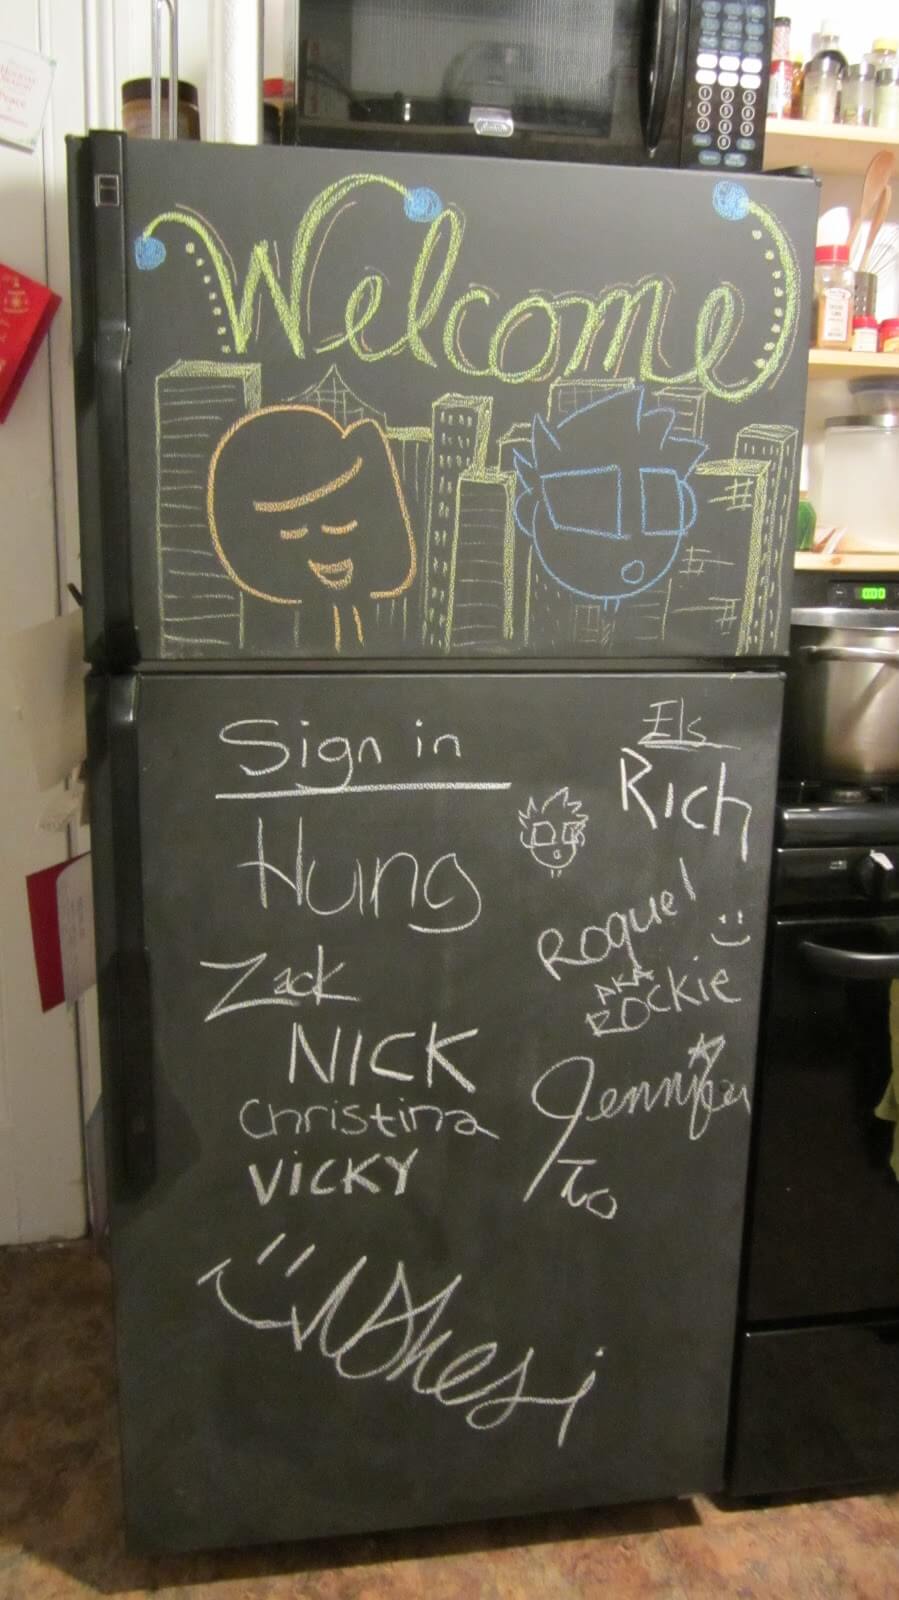 Welcome
Sign in
Hung
Zack
NICK
Christina
VICKY
Els
Rich
Roquel
AKA
ROCKIE
Jennifer
To